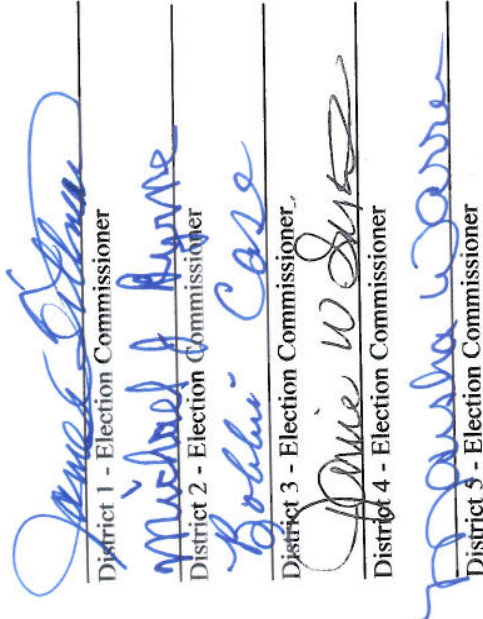 James
District 1 - Election Commissioner
Michael J Byrne
District 2 - Election Commissioner
Bobbie Case
District 3 - Election Commissioner
W
District 4 - Election Commissioner
Marsha Warren
District 5 - Election Commissioner